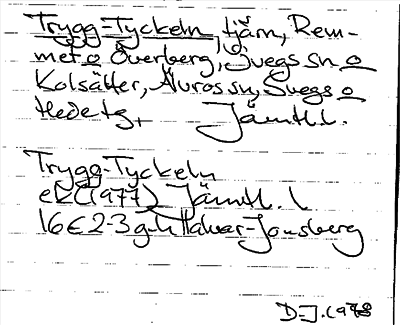 Trygg-Tyckeln, tjärn, Rem-
met o Överberg, Svegs sn o
Kolsätter, Älvros sn, Svegs o
Hede tg, Jämtl.l.
Trygg-Tyckeln
ek (1977) Jämtl. l
16E2-3g-h Halvar-Jonsberg
D-J. 1978